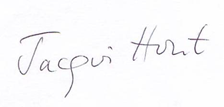 Jacqui Hunt